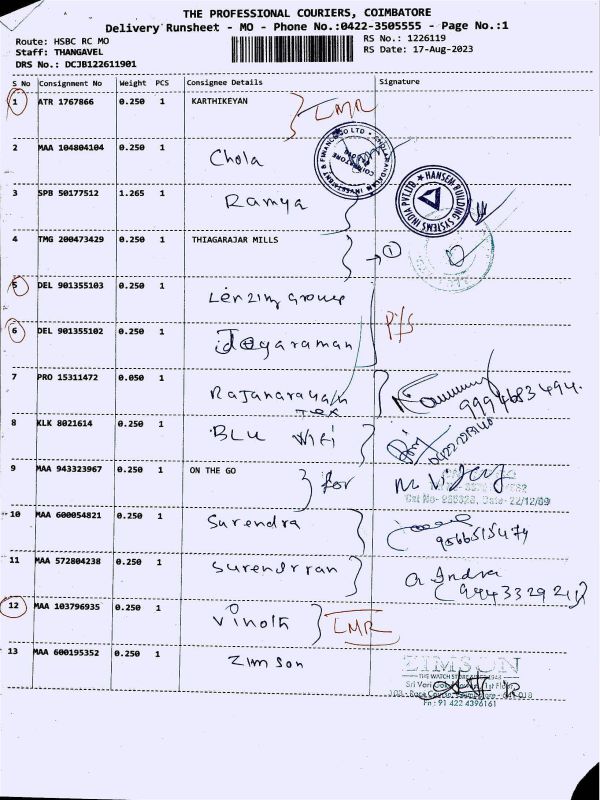 THE PROFESSIONAL COURIERS, COIMBATORE
Delivery Runsheet - MO - Phone No.:0422-3505555 - Page No.:1
Route: HSBC RC MO
RS No.: 1226119
Staff: THANGAVEL
RS Date: 17-Aug-2023
DRS No.: DCJB122611901
S No Consignment No Weight PCS Consignee Details Signature
1 ATR 1767866 0.250 1 KARTHIKEYAN LMR
2 MAA 104804104 0.250 1 Chola
3 SPB 50177512 1.265 1 Ramya
HANSEN BUILDING SYSTEMS INDIA PVT LTD
4 TMG 200473429 0.250 1 THIAGARAJAR MILLS → 1
5 DEL 901355103 0.250 1 Lenzing group
P/S
6 DEL 901355102 0.250 1 Jegaraman
7 PRO 15311472 0.050 1 Rajanarayan Tex
9994683494
8 KLK 8021614 0.250 1 BLU WiFi
9 MAA 943323967 0.250 1 ON THE GO for M Vijay
Date 22/12/09
10 MAA 600054821 0.250 1 Surendra
9566515474
11 MAA 572804238 0.250 1 Surendrran a Indra
12 MAA 103796935 0.250 1 Vinoth LMR
13 MAA 600195352 0.250 1 Zimson
ZIMSON
THE WATCH STORE SINCE 1948
Ph : 91 422 4396161